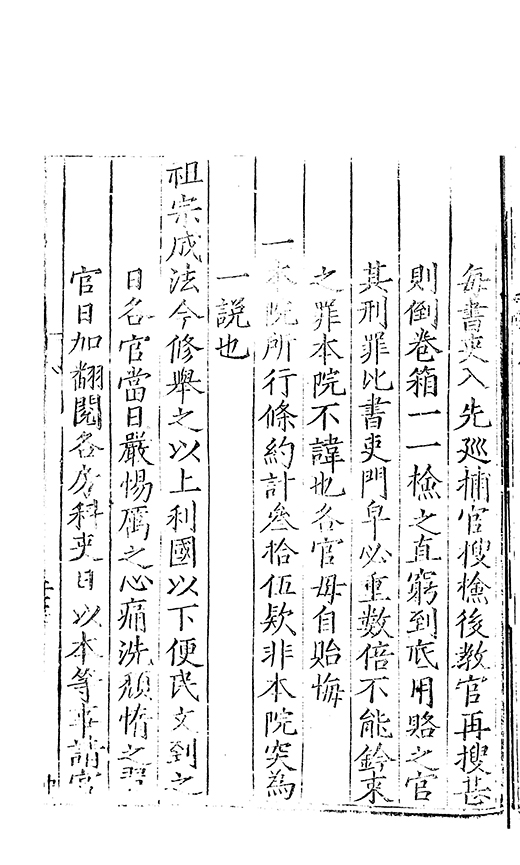 每書吏入先廵捕官搜檢後教官再搜甚
則倒卷箱一一檢之直窮到底用賂之官
其刑罪比書吏門皁必重數倍不能鈐束
之罪本院不諱也各官毋自貽悔
一本院所行條約計叄拾伍欵非本院突為
一説也
祖宗成法今修舉之以上利國以下便民文到之
日各官當日嚴惕厲之心痛洗頽惰之習
官日加翻閱各房科吏日以本等事請官